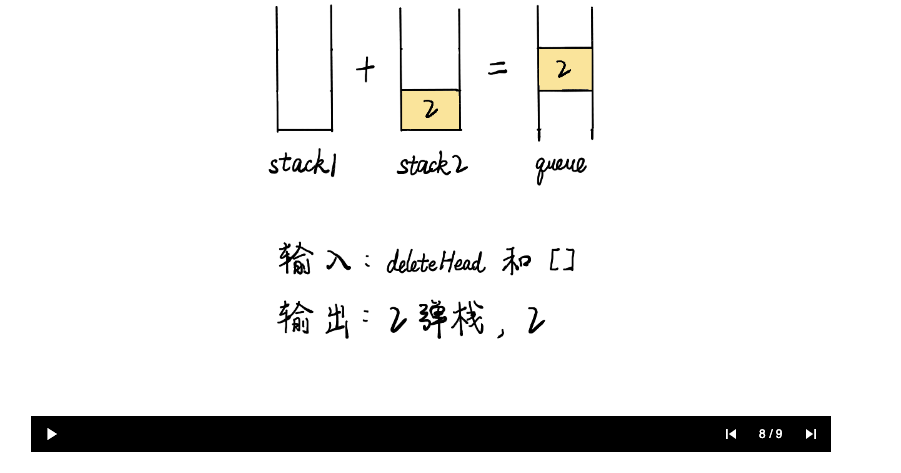 + 2 = 2
stack1 stack2 queue
输入：deleteHead 和 []
输出：2 弹栈，2
8 / 9